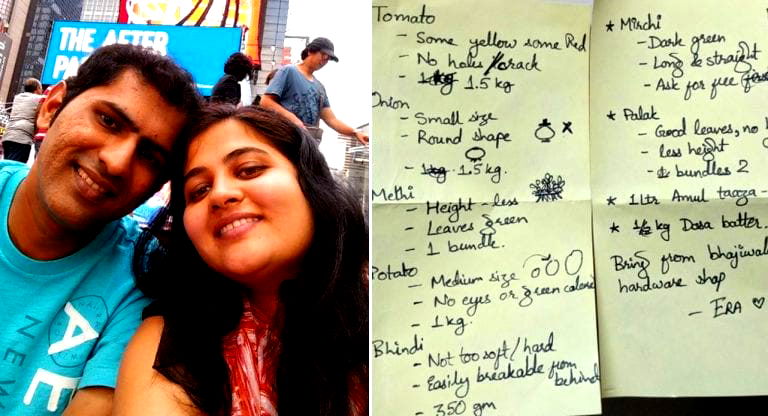 THE AFTER
PA
AE
NEW
Tomato
- Some yellow some Red
- No holes / crack
- 1.5 kg
Onion
- Small size
- Round shape x
- 1.5 kg.
Methi
- Height - less
- Leaves green
- 1 bundle.
Potato
- Medium size
- No eyes or green colored
- 1 kg.
Bhindi
- Not too soft / hard
- Easily breakable from
behind
- 350 gm
* Mirchi
- Dark green
- Long & straight
- Ask for free
* Palak
- Good leaves, no
- less height
- bundles 2
* 1 ltr Amul taaza -
* 1/2 kg Dosa batter.
Bring from bhajiwala
hardware shop
- ERA ♡